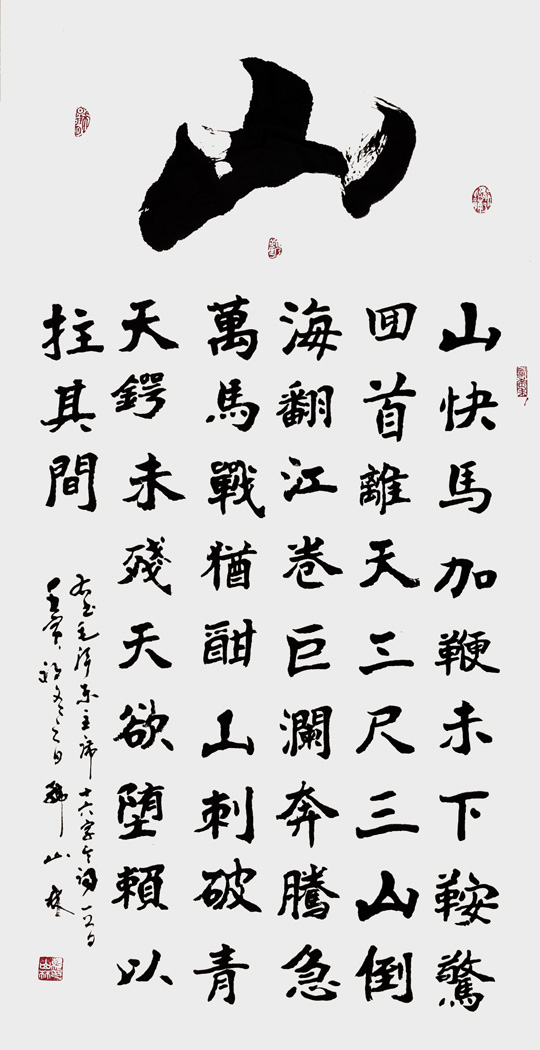 山
山快馬加鞭未下鞍驚
囬首離天三尺三山倒
海翻江卷巨瀾奔騰急
萬馬戰猶酣山刺破青
天鍔未殘天欲堕賴以
拄其間
右书毛泽东主席十六字令词一首
壬寅初冬之日 山林